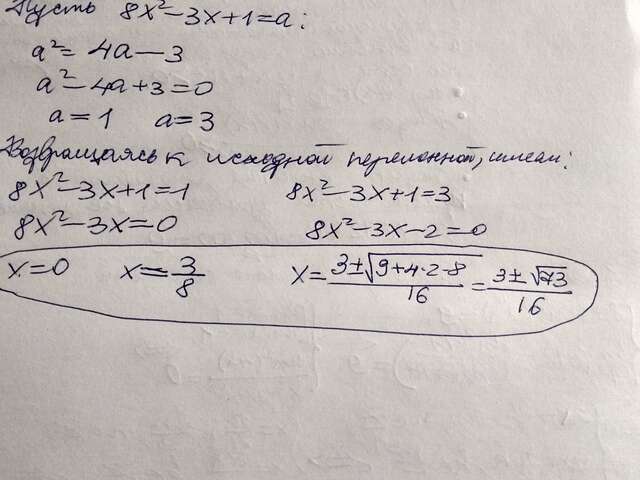 Пусть 8x²-3x+1=a:
a²= 4a-3
a²-4a+3=0
a=1 a=3
Возвращаясь к исходной переменной, имеем:
8x²-3x+1=1 8x²-3x+1=3
8x²-3x=0 8x²-3x-2=0
x=0 x=3/8 x=(3±√(9+4·2·8))/16=(3±√73)/16